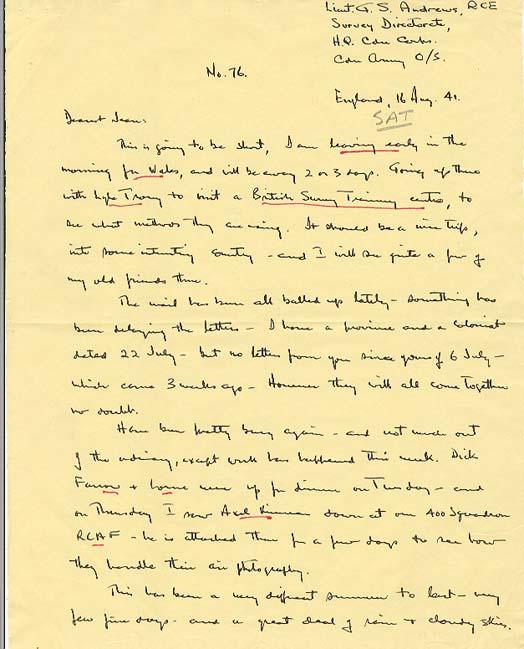 Lieut. G. S. Andrews, RCE
Survey Directorate,
H.Q. Cdn Corps.
Cdn Army O/S.
No. 76.
England, 16 Aug. 41.
SAT
Dearest Jean:
This is going to be short, I am leaving early in the
morning for Wales, and will be away 2 or 3 days. Going up there
with to visit a British Survey Training centre, to
see what methods they are using. It should be a nice trip,
into some interesting country - and I will see quite a few of
my old friends there.
The mail has been all balled up lately - something has
been delaying the letters - I have a province and a Colonist
dated 22 July - but no letters from you since yours of 6 July -
which came 3 weeks ago - However they will all come together
no doubt.
Have been pretty busy again - and not much out
of the ordinary, except work has happened this week. Dick
Farrow + were up for dinner on Tuesday - and
on Thursday I saw Axel Kinnear down at our 400 Squadron
RCAF - he is attached there for a few days to see how
they handle their air photography.
This has been a very different summer to last - very
few fine days - and a great deal of rain + cloudy skies.